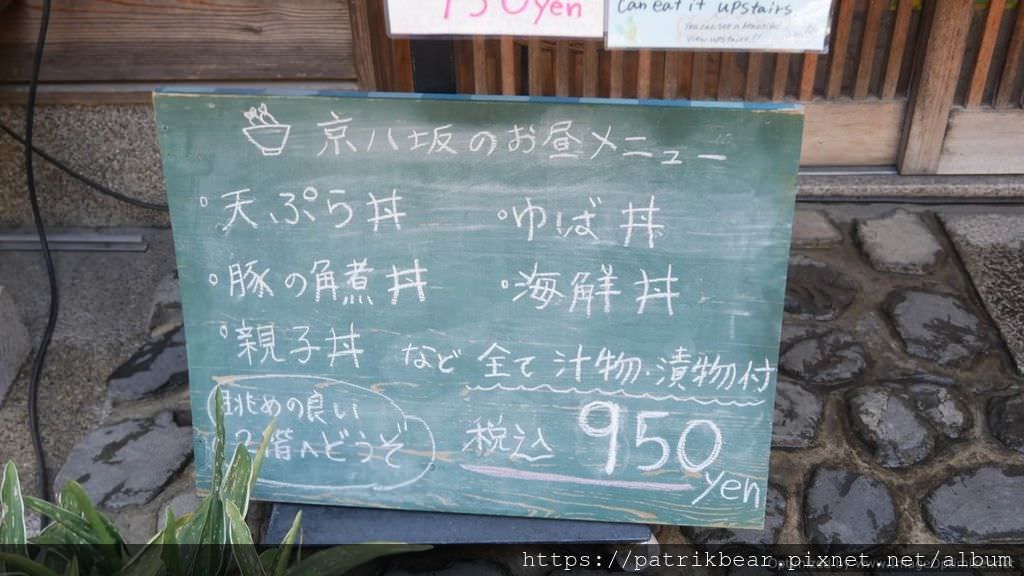 150yen
can eat it upstairs
You can see a beautiful
view upstairs!!
京八坂のお昼メニュー
・天ぷら丼
・ゆば丼
・豚の角煮丼
・海鮮丼
・親子丼
など 全て汁物・漬物付
眺めの良い
2階へどうぞ
税込 950
yen
https://patrikbear.pixnet.net/album